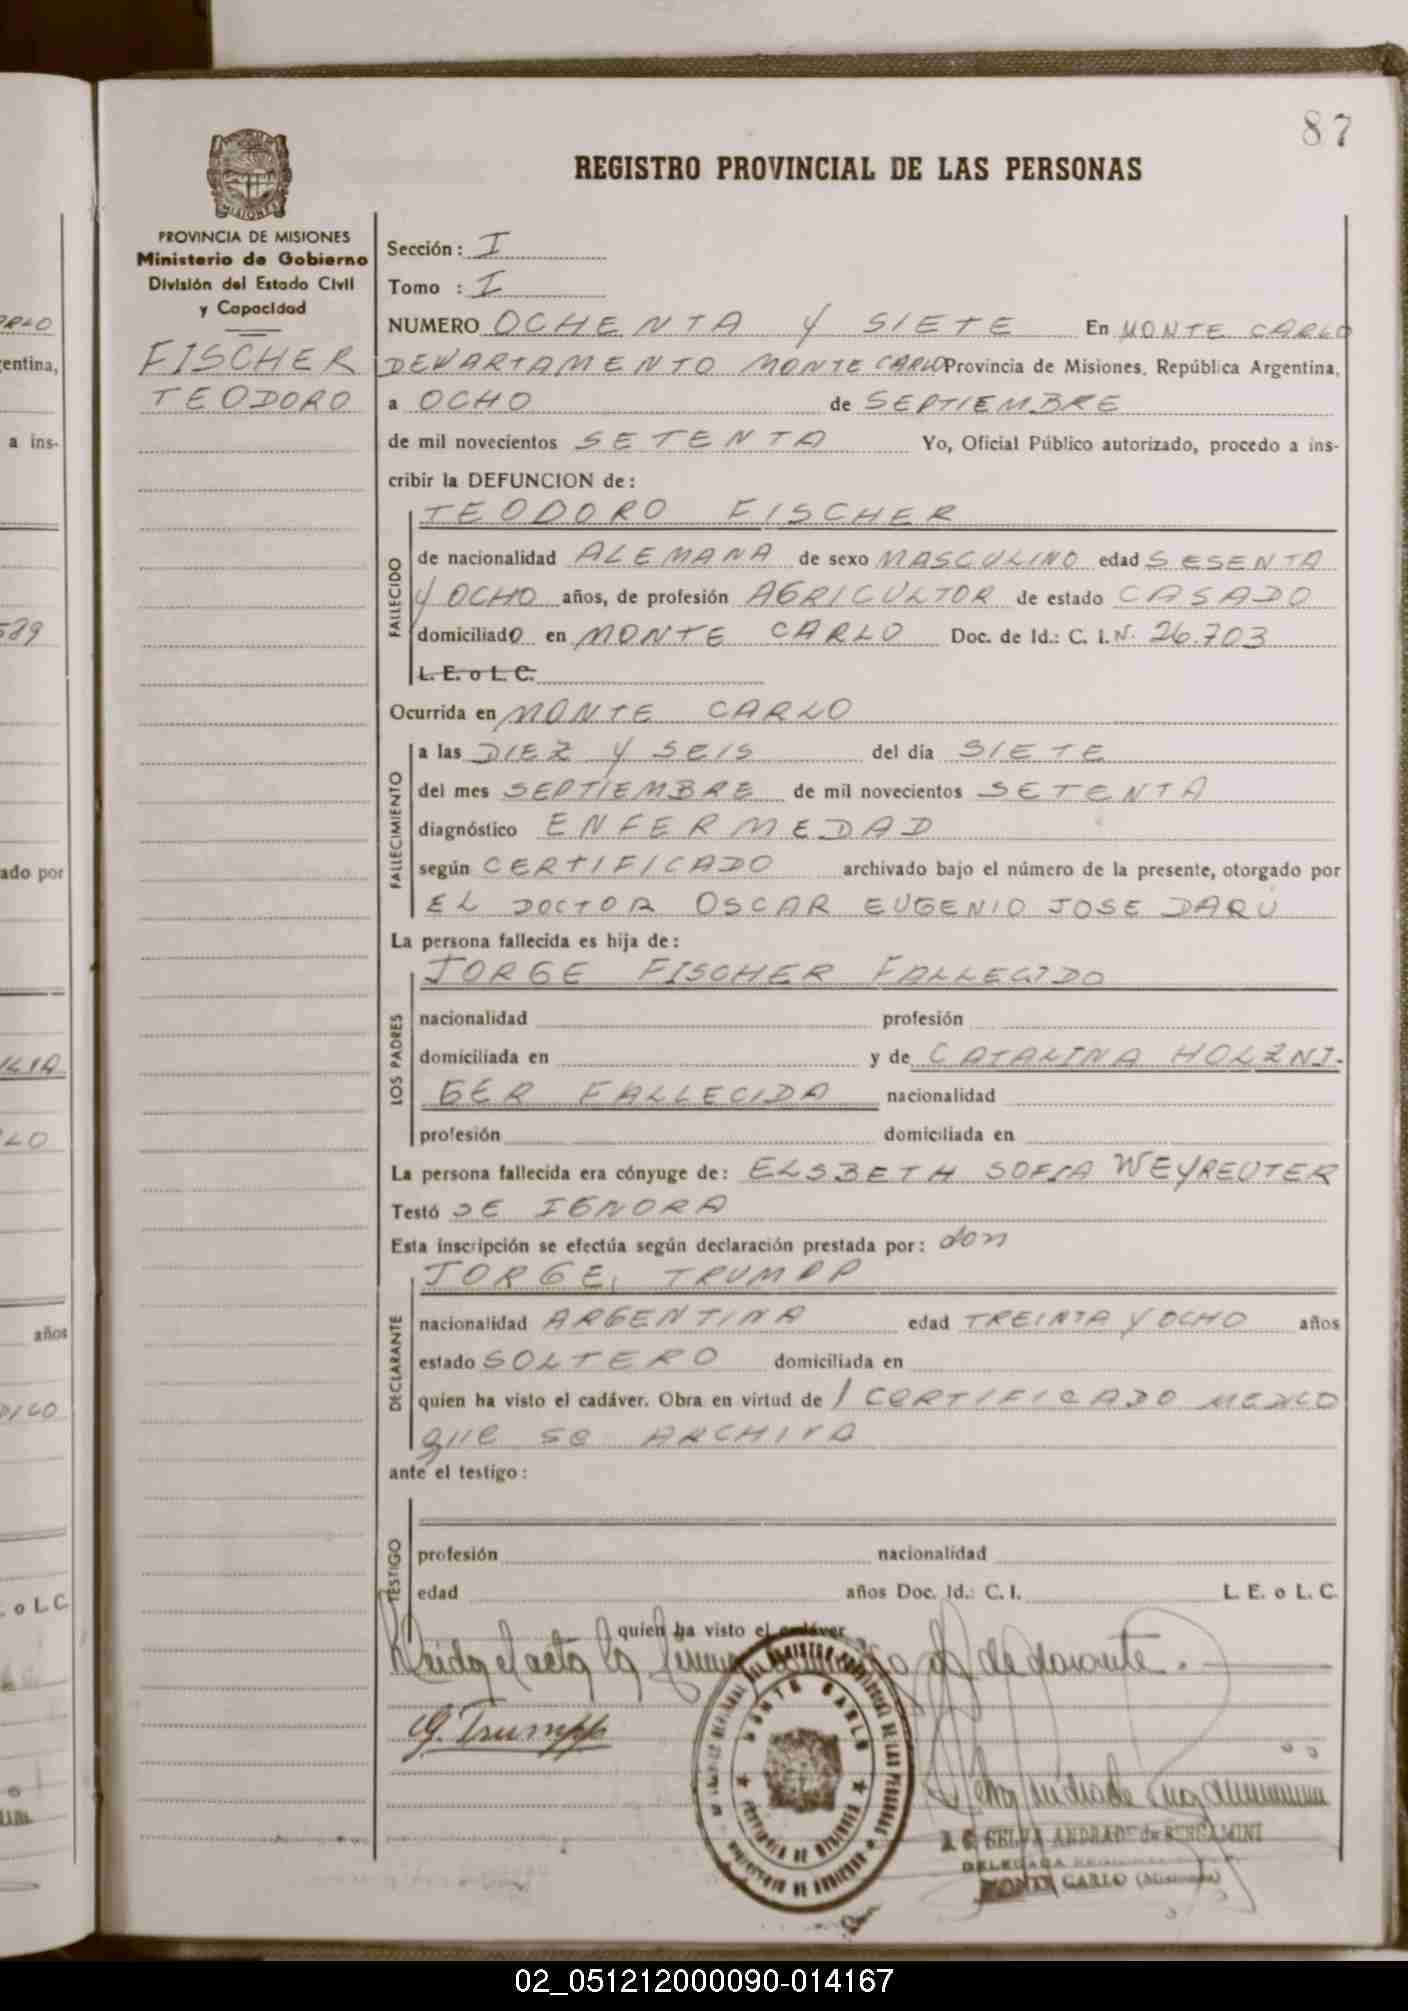 87
REGISTRO PROVINCIAL DE LAS PERSONAS
MISIONES
PROVINCIA DE MISIONES
Ministerio de Gobierno
División del Estado Civil
y Capacidad
FISCHER
TEODORO
Sección: I
Tomo : I
NUMERO OCHENTA Y SIETE En MONTE CARLO
DEPARTAMENTO MONTE CARLO Provincia de Misiones, República Argentina,
a OCHO de SEPTIEMBRE
de mil novecientos SETENTA Yo, Oficial Público autorizado, procedo a ins-
cribir la DEFUNCION de:
TEODORO FISCHER
FALLECIDO
de nacionalidad ALEMANA de sexo MASCULINO edad SESENTA
Y OCHO años, de profesión AGRICULTOR de estado CASADO
domiciliado en MONTE CARLO Doc. de Id.: C. I. N. 26.703
L. E. o L. C.
Ocurrida en MONTE CARLO
FALLECIMIENTO
a las DIEZ Y SEIS del día SIETE
del mes SEPTIEMBRE de mil novecientos SETENTA
diagnóstico ENFERMEDAD
según CERTIFICADO archivado bajo el número de la presente, otorgado por
EL DOCTOR OSCAR EUGENIO JOSE DARU
La persona fallecida es hija de:
JORGE FISCHER FALLECIDO
LOS PADRES
nacionalidad profesión
domiciliada en y de CATALINA HOLZNI-
GER FALLECIDA nacionalidad
profesión domiciliada en
La persona fallecida era cónyuge de: ELSBETH SOFIA WEYREUTER
Testó SE IGNORA
Esta inscripción se efectúa según declaración prestada por: don
JORGE TRUMPP
DECLARANTE
nacionalidad ARGENTINA edad TREINTA Y OCHO años
estado SOLTERO domiciliada en
quien ha visto el cadáver. Obra en virtud de 1 CERTIFICADO MEDICO
que se ARCHIVA
ante el testigo:
TESTIGO
profesión nacionalidad
edad años Doc. Id.: C. I. L. E. o L. C.
quien ha visto el cadáver
Leida el acta la firma conmigo el declarante.
G. Trumpp
MONTE CARLO
PROVINCIA DE MISIONES
SELVA ANDRADE de BERGAMINI
DELEGADA
MONTE CARLO (Misiones)
entina,
a ins-
589
ado por
años
o L.C.
02_051212000090-014167